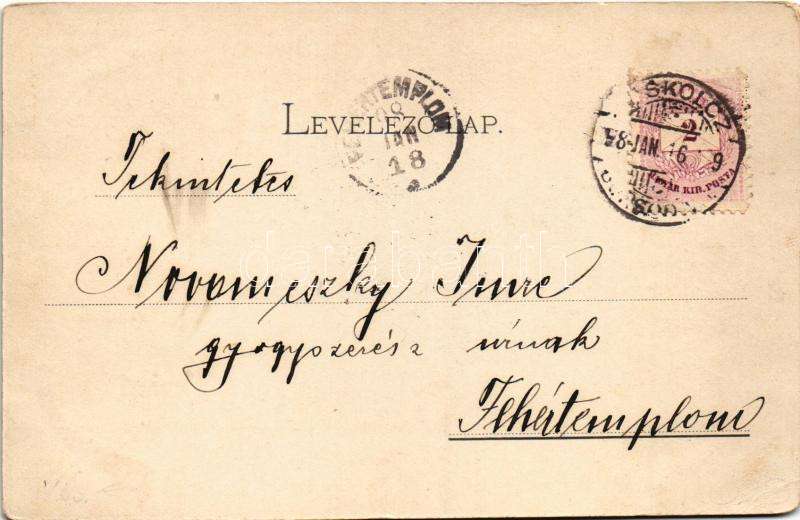 LEVELEZŐ-LAP.
FEHÉRTEMPLOM
98
JAN
18
MISKOLCZ
98-JAN 16 9
BORSOD
2
MAGYAR KIR. POSTA
Tekintetes
Novomeszky Imre
gyógyszerész úrnak
Fehértemplom
darabanth